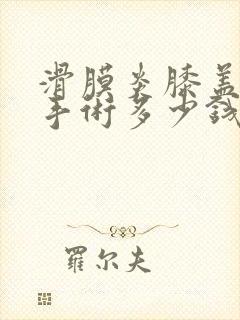 滑膜炎膝盖
手術多少钱
羅尔夫